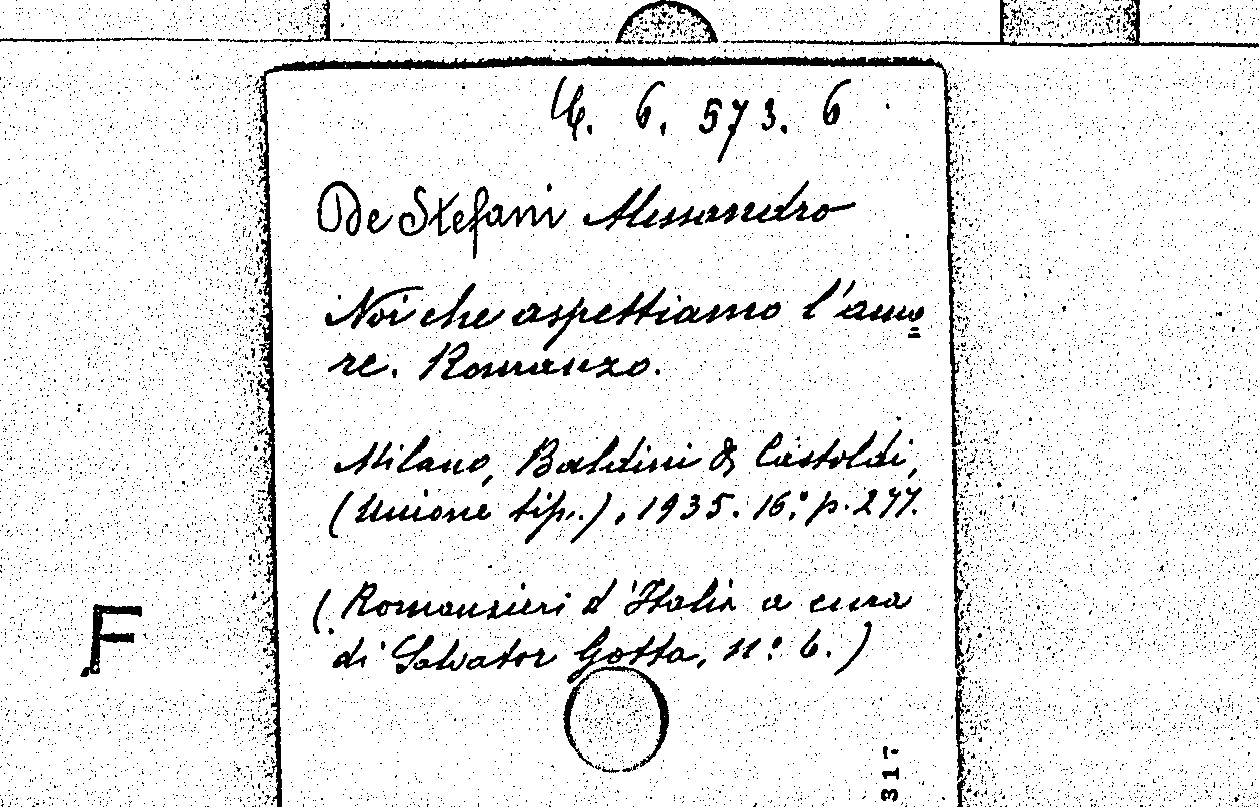 6. 573. 6
De Stefani Alessandro
Noi che aspettiamo l'amo=
re. Romanzo.
Milano, Baldini & Castoldi,
(Unione tip.), 1935. 16.° p. 277.
(Romanzieri d'Italia a cura
di Salvator Gotta, n.° 6.)
F
317